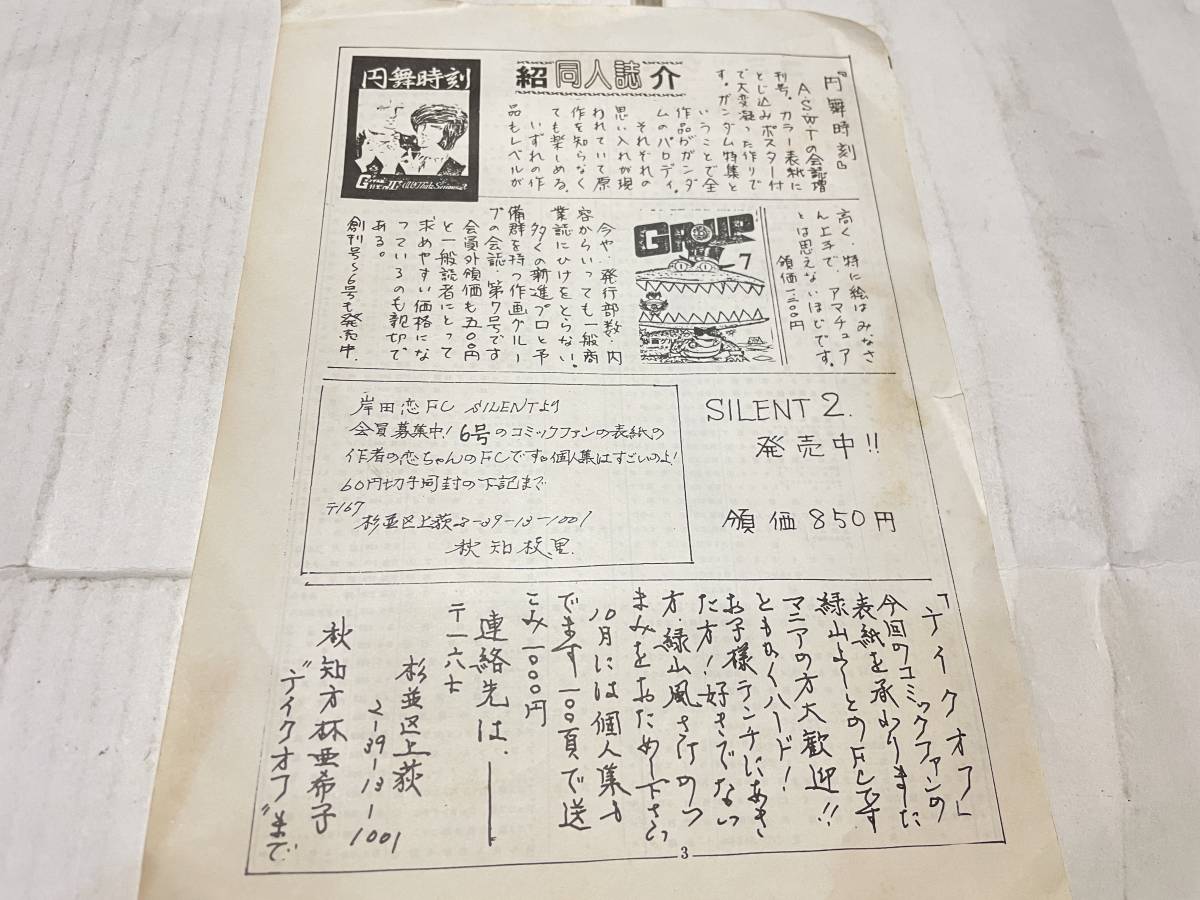 紹同人誌介
『円舞時刻』
A・SWTの会誌増
刊号。カラー表紙に
とじ込みポスター付
で大変凝った作りで
す。ガンダム特集と
いうことで全
作品がガンダ
ムのパロディ。
それぞれの
思い入れが現
われていて原
作を知らなく
ても楽しめる。
いずれの作
品もレベルが
円舞時刻
高く、特に絵はみなさ
ん上手で、アマチュア
とは思えないほどです。
GROUP
7
今や、発行部数・内
容からいっても一般商
業誌にひけをとらない。
多くの新進プロと予
備群を持つ作画グルー
プの会誌・第7号です
会員外領価も五〇円
と一般読者にとって
求めやすい価格にな
っているのも親切で
ある。
創刊号〜6号も発売中.
岸田恋FC SILENTより
会員募集中! 6号のコミックファンの表紙の
作者の恋ちゃんのFCです。個人集はすごいのよ!
60円切手同封の下記まで
〒167
杉並区上荻2-39-13-1001
秋知
SILENT 2.
発売中!!
領価850円
「テイクオフ」
今回のコミックファンの
表紙を承わりました
緑山よしとのFCです
マニアの方大歓迎!!
ともかくハード!
お子様ランチにあき
た方!好きでない
方、緑山風さけのつ
まみをおためし下さい
10月には個人集も
でます一〇〇頁で送
こみ一〇〇〇円
連絡先は、
〒一六七
杉並区上荻
2-39-13-1001
秋知方林亜希子
"テイクオフ"まで
3